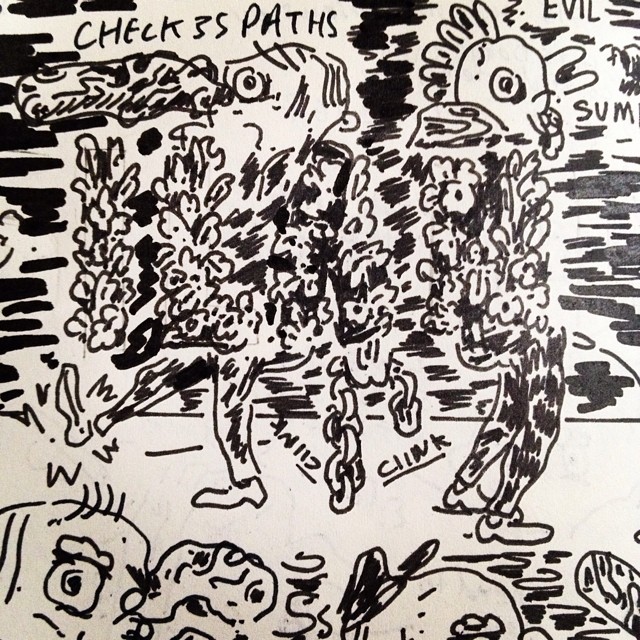 CHECK 3S PATHS
EVIL
SUM
CLINK
CLINK